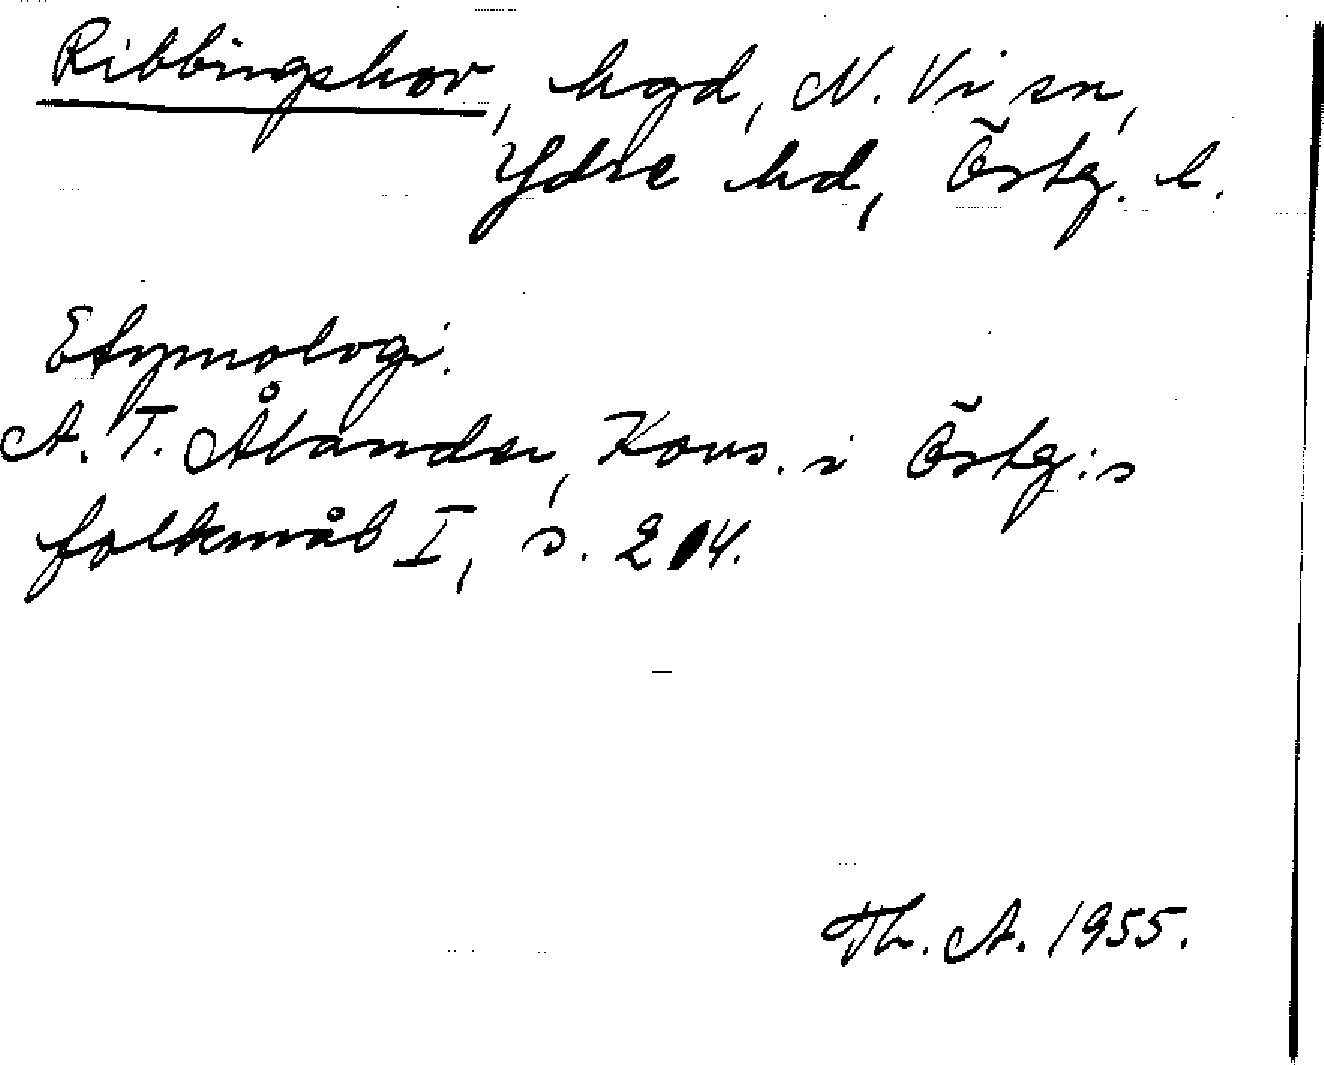 Ribbingshov, hgd, N. Vi sn,
Ydre hd, Östg. l.
Etymologi.
A. T. Ålander, Kons. i Östg:s
folkmål I, s. 204.
Th. A. 1955.